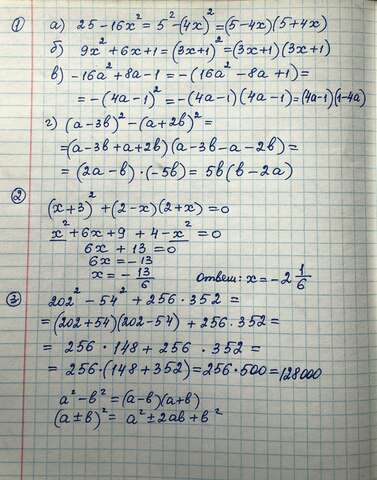 ① а) 25 - 16x² = 5² - (4x)² = (5-4x)(5+4x)
б) 9x² + 6x + 1 = (3x+1)² = (3x+1)(3x+1)
в) -16a² + 8a - 1 = -(16a² - 8a + 1) =
= -(4a-1)² = -(4a-1)(4a-1) = (4a-1)(1-4a)
г) (a-3b)² - (a+2b)² =
= (a-3b+a+2b)(a-3b-a-2b) =
= (2a-b)·(-5b) = 5b(b-2a)
②
(x+3)² + (2-x)(2+x) = 0
x² + 6x + 9 + 4 - x² = 0
6x + 13 = 0
6x = -13
x = -13/6 Ответ: x = -2 1/6
③ 202² - 54² + 256·352 =
= (202+54)(202-54) + 256·352 =
= 256·148 + 256·352 =
= 256·(148+352) = 256·500 = 128000
a² - b² = (a-b)(a+b)
(a±b)² = a² ± 2ab + b²